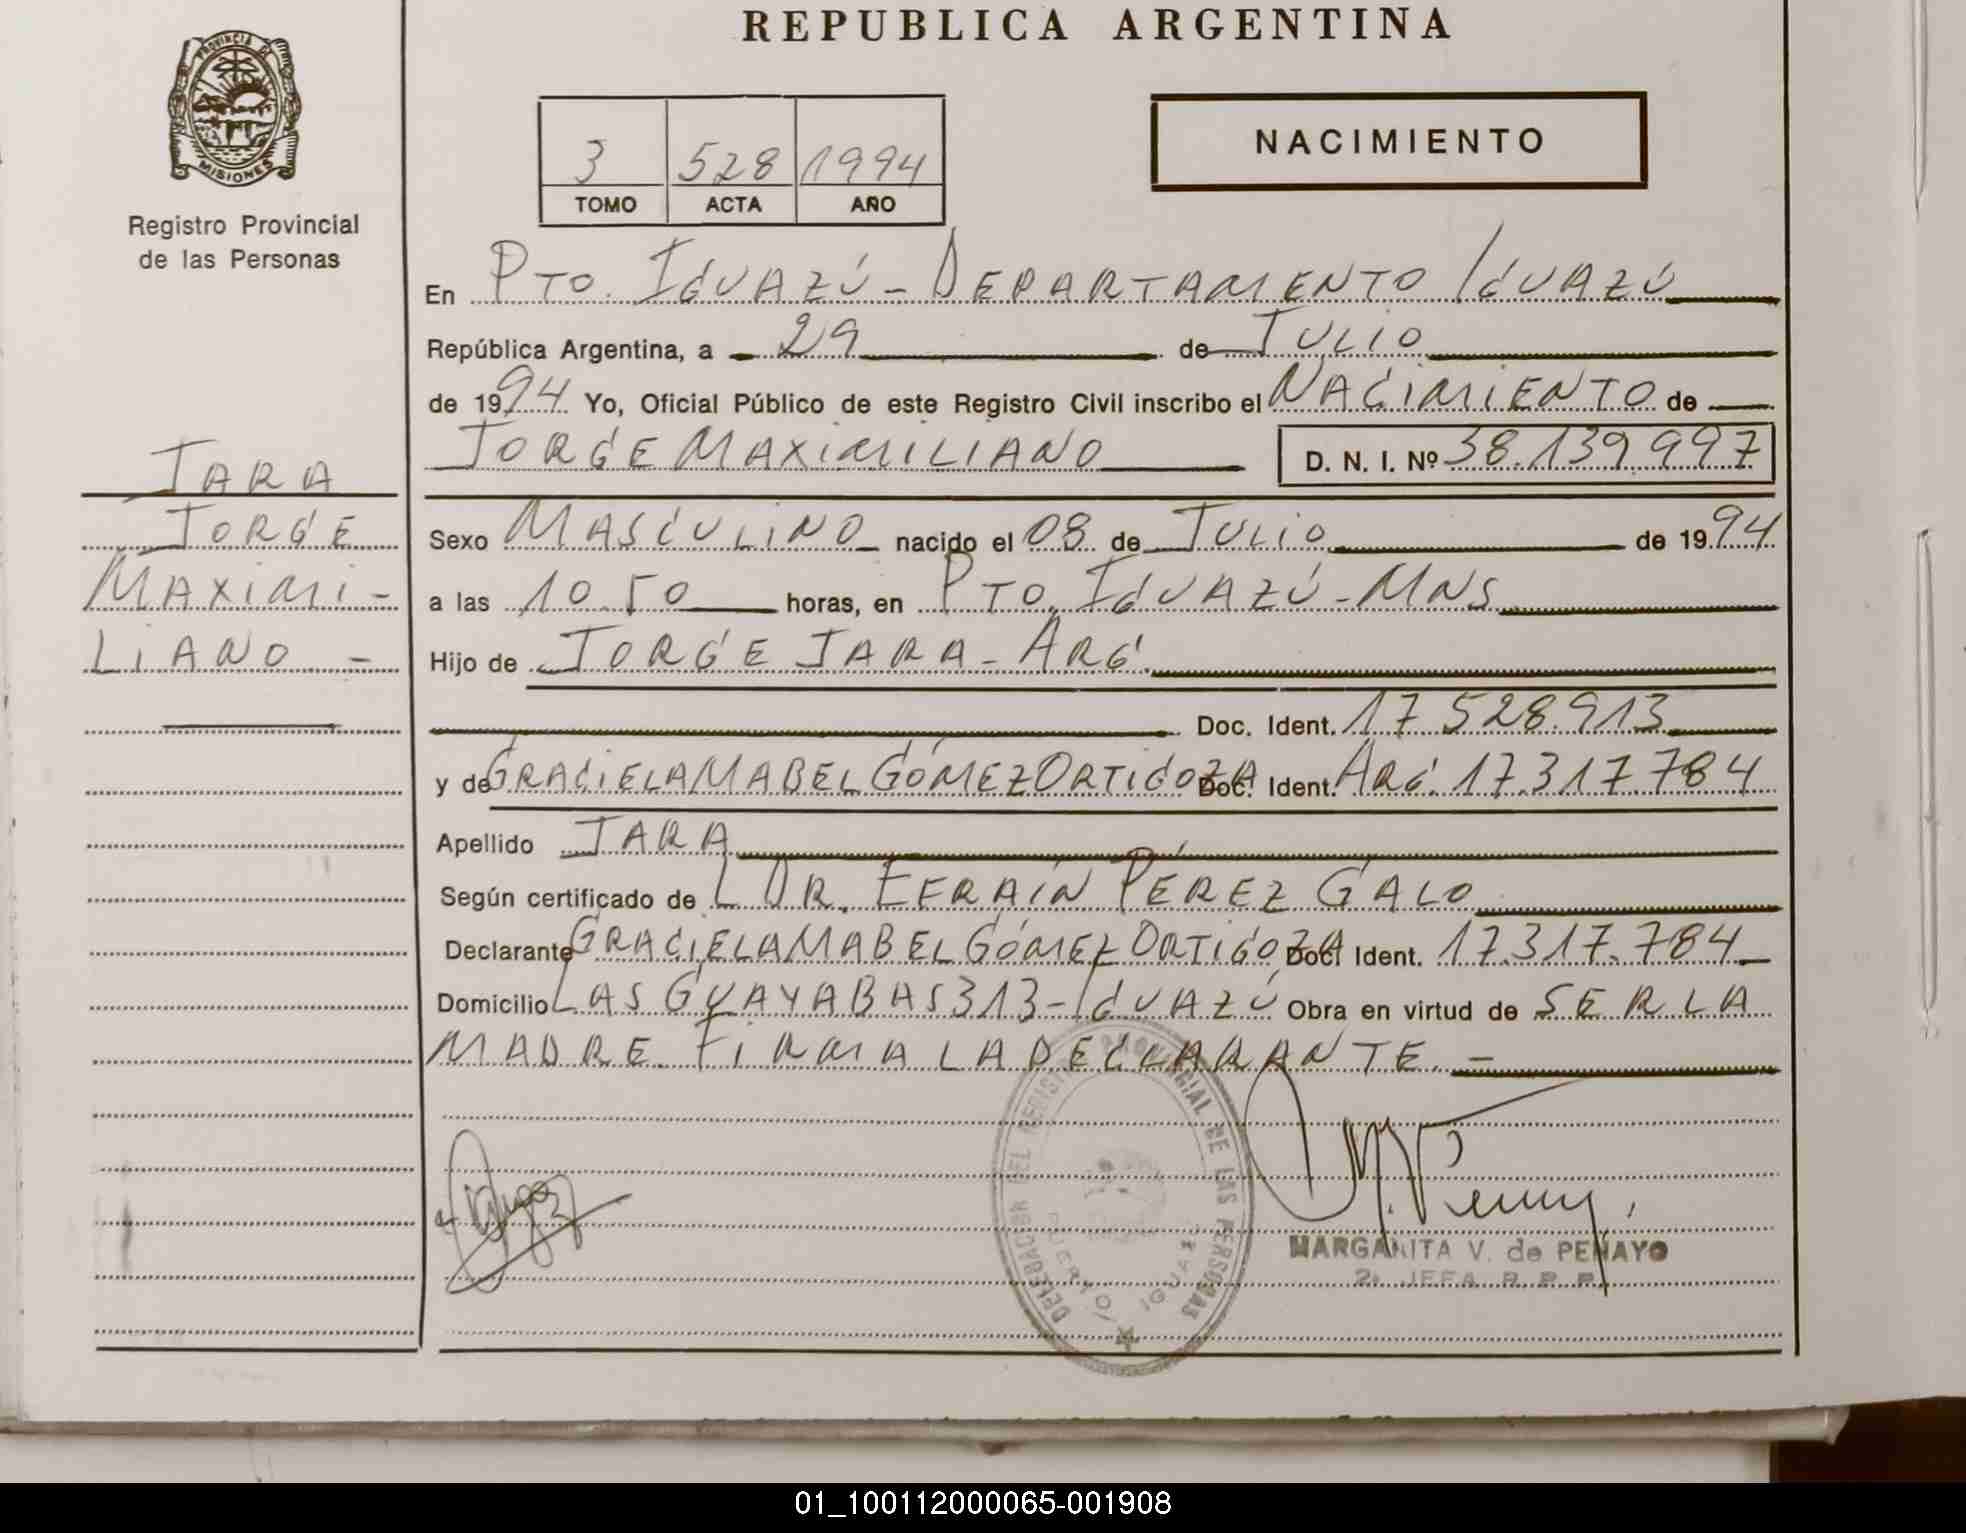 REPUBLICA ARGENTINA
PROVINCIA DE MISIONES
Registro Provincial
de las Personas
3 528 1994
TOMO ACTA AÑO
NACIMIENTO
En PTO. IGUAZÚ - DEPARTAMENTO IGUAZÚ
República Argentina, a 29 de JULIO
de 1994 Yo, Oficial Público de este Registro Civil inscribo el NACIMIENTO de
JORGE MAXIMILIANO D. N. I. Nº 38.139.997
JARA
JORGE
MAXIMI-
LIANO -
Sexo MASCULINO nacido el 08 de JULIO de 1994
a las 10.50 horas, en PTO. IGUAZÚ - MNS
Hijo de JORGE JARA - ARG.
Doc. Ident. 17.528.913
y de GRACIELA MABEL GÓMEZ ORTIGOZA Doc. Ident. ARG. 17.317.784
Apellido JARA
Según certificado de L DR. EFRAÍN PÉREZ GALO
Declarante GRACIELA MABEL GÓMEZ ORTIGOZA Doc. Ident. 17.317.784
Domicilio LAS GUAYABAS 313 - IGUAZÚ Obra en virtud de SER LA
MADRE. FIRMA LA DECLARANTE. -
DELEGACION DEL REGISTRO PROVINCIAL DE LAS PERSONAS
PUERTO IGUAZU
MARGARITA V. de PENAYO
2ª JEFA R. P. P.
01_100112000065-001908